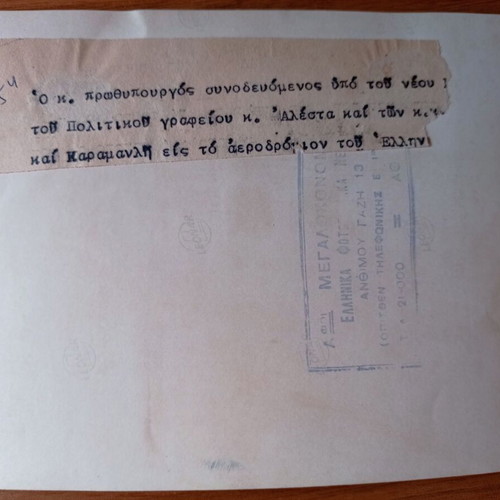 54
Ὁ κ. πρωθυπουργός συνοδευόμενος ὑπό τοῦ νέου
τοῦ Πολιτικοῦ γραφείου κ. Ἀλέστα καί τῶν κ.
καί Καραμανλῆ εἰς τό ἀεροδρόμιον τοῦ Ἑλλην
ΜΕΓΑΛΟΚΟΝΟΜ
ΕΛΛΗΝΙΚΑ ΦΩΤ
ΑΝΘΙΜΟΥ ΓΑΖΗ 13
ΤΗΛΕΦΩΝΙΚΗΣ Ε
21-000